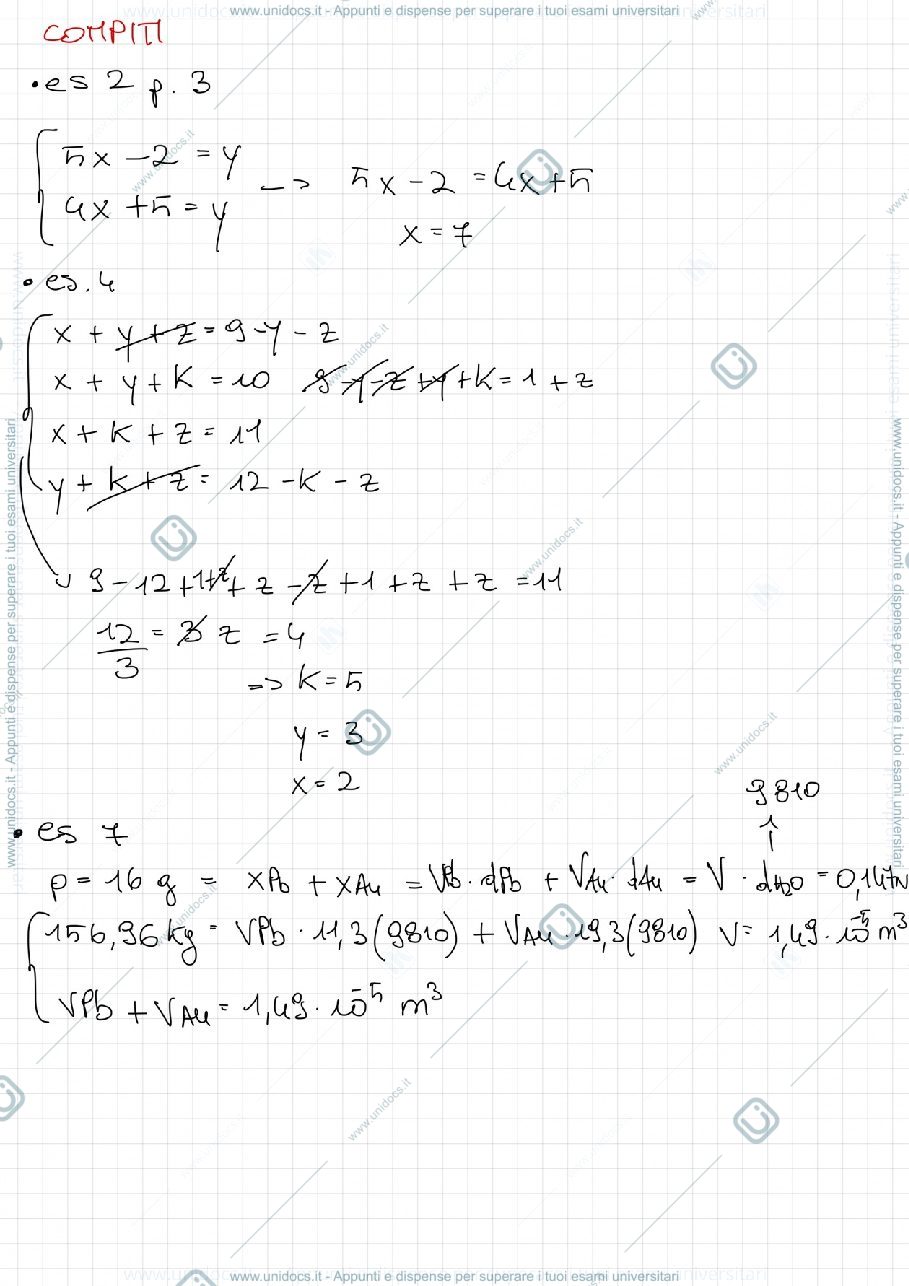 www.unidocs.it - Appunti e dispense per superare i tuoi esami universitari
COMPITI
• es 2 p. 3
5x - 2 = y
4x + 5 = y
-> 5x - 2 = 4x + 5
x = 7
• es. 4
x + y + z = 9 - y - z
x + y + k = 10 9 - y - z + y + k = 1 + z
x + k + z = 11
y + k + z = 12 - k - z
9 - 12 + 1 + z + z - z + 1 + z + z = 11
12/3 = 3 z = 4
=> k = 5
y = 3
x = 2
9810
• es 7
p = 16 g = xPb + xAu = VPb · dPb + VAu · dAu = V · dH2O = 0,147N
156,96 kg = VPb · 11,3 (9810) + VAu · 19,3 (9810) V = 1,49 · 10⁻⁵ m³
VPb + VAu = 1,49 · 10⁻⁵ m³
www.unidocs.it - Appunti e dispense per superare i tuoi esami universitari